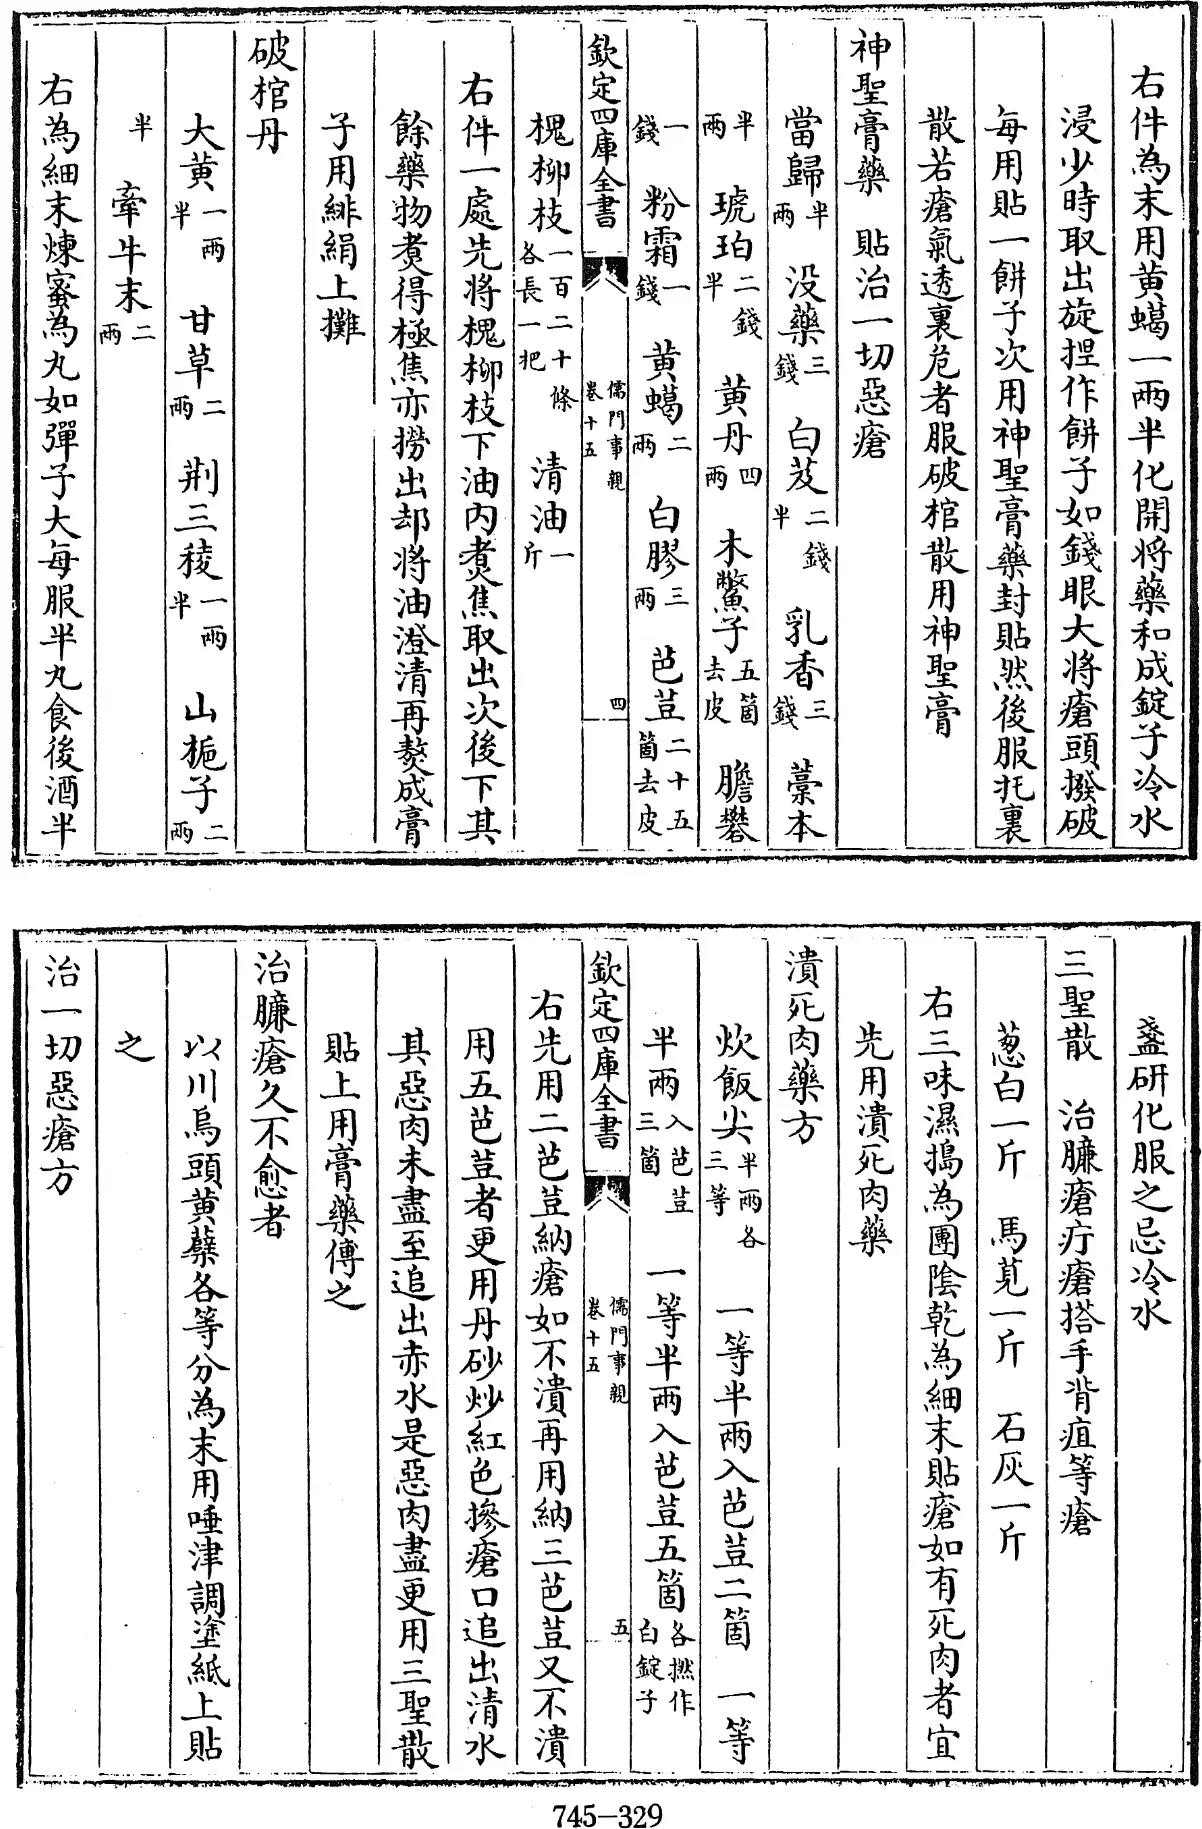 右件為末用黄蠟一兩半化開將藥和成錠子冷水
浸少時取出旋揑作餅子如錢眼大將瘡頭撥破
每用貼一餅子次用神聖膏藥封貼然後服托裏
散若瘡氣透裏危者服破棺散用神聖膏
神聖膏藥 貼治一切惡瘡
當歸半兩 没藥三錢 白芨二錢半 乳香三錢 藁本
半兩 琥珀二錢半 黄丹四兩 木鱉子五箇去皮 膽礬
一錢 粉霜一錢 黄蠟二兩 白膠三兩 芭荳二十五箇去皮
欽定四庫全書 儒門事親 卷十五 四
槐柳枝一百二十條各長一把 清油一斤
右件一處先將槐柳枝下油内煑焦取出次後下其
餘藥物煑得極焦亦撈出却將油澄清再熬成膏
子用緋絹上攤
破棺丹
大黄一兩半 甘草二兩 荆三稜一兩半 山梔子二兩
半 牽牛末二兩
右為細末煉蜜為丸如彈子大每服半丸食後酒半
盞研化服之忌冷水
三聖散 治臁瘡疔瘡搭手背疽等瘡
葱白一斤 馬莧一斤 石灰一斤
右三味濕搗為團隂乾為細末貼瘡如有死肉者宜
先用潰死肉藥
潰死肉藥方
炊飯尖半兩各三等 一等半兩入芭荳二箇 一等
半兩入芭荳三箇 一等半兩入芭荳五箇各撚作白錠子
欽定四庫全書 儒門事親 卷十五 五
右先用二芭荳納瘡如不潰再用納三芭荳又不潰
用五芭荳者更用丹砂炒紅色摻瘡口追出清水
其惡肉未盡至追出赤水是惡肉盡更用三聖散
貼上用膏藥傅之
治臁瘡久不愈者
以川烏頭黄蘗各等分為末用唾津調塗紙上貼
之
治一切惡瘡方
745-329